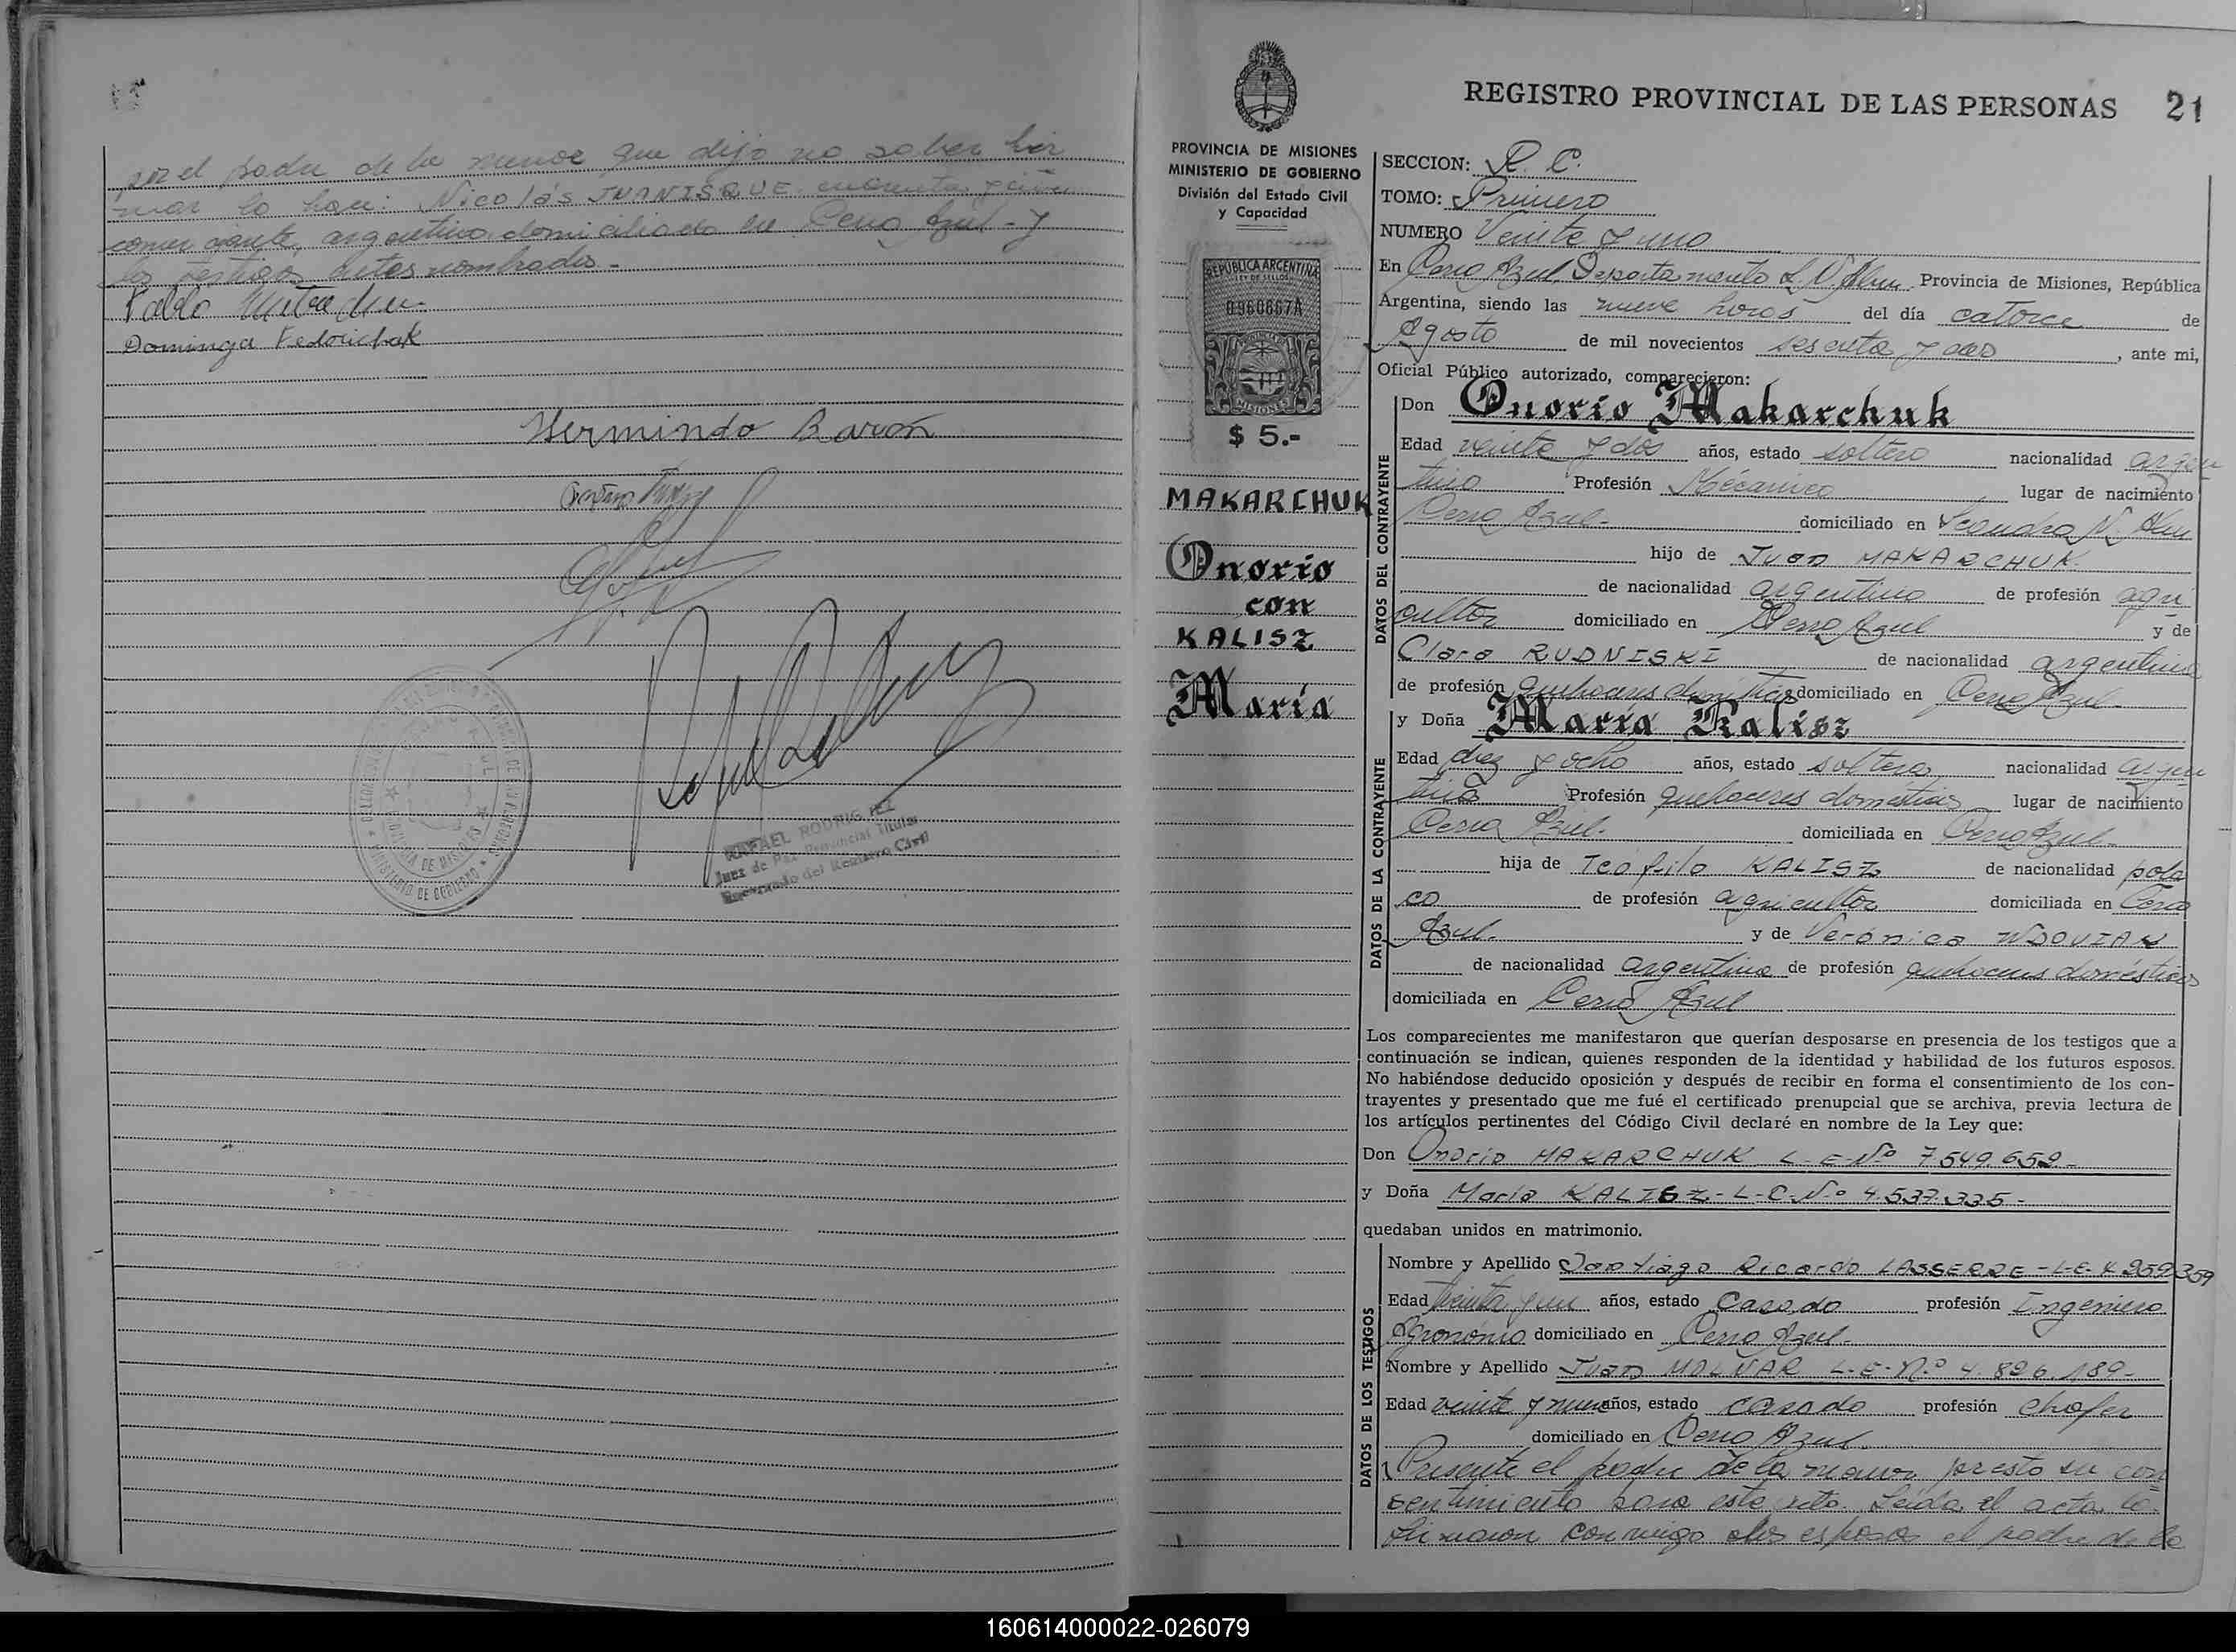 por el padre de la menor que dijo no saber fir
mar lo hace: Nicolás JUANISQUE cuarenta y cinco
comerciante, argentino domiciliado en Cerro Azul - y
los testigos antes nombrados -
Pablo
Dominga Fedorichak
Hermindo Barón
RAFAEL RODRIGUEZ
Juez de Paz Titular
Encargado del Registro Civil
PROVINCIA DE MISIONES
MINISTERIO DE GOBIERNO
División del Estado Civil
y Capacidad
REPUBLICA ARGENTINA
LEY DE SELLOS
0960667A
MISIONES
$ 5.-
MAKARCHUK
Onorio
con
KALISZ
María
REGISTRO PROVINCIAL DE LAS PERSONAS 21
SECCION: R. C.
TOMO: Primero
NUMERO Veinte y uno
En Cerro Azul, Departamento L. N. Alem Provincia de Misiones, República
Argentina, siendo las nueve horas del día catorce de
Agosto de mil novecientos sesenta y dos, ante mi,
Oficial Público autorizado, comparecieron:
DATOS DEL CONTRAYENTE
Don Onorio Makarchuk
Edad veinte y dos años, estado soltero nacionalidad argen
tino Profesión Mécanico lugar de nacimiento
Cerro Azul.- domiciliado en Leandro N. Alem
hijo de Juan MAKARCHUK.
de nacionalidad argentino de profesión agri
cultor domiciliado en Cerro Azul y de
Clara RUDNISKI de nacionalidad argentina
de profesión quehaceres domésticos domiciliado en Cerro Azul.-
DATOS DE LA CONTRAYENTE
y Doña María Kalisz
Edad diez y ocho años, estado soltera nacionalidad argen
tina Profesión quehaceres domésticos lugar de nacimiento
Cerro Azul.- domiciliada en Cerro Azul.-
hija de Teofilo KALISZ de nacionalidad pola
co de profesión agricultor domiciliada en Cerro
Azul.- y de Verónica WDOVIAK
de nacionalidad argentina de profesión quehaceres domésticos
domiciliada en Cerro Azul
Los comparecientes me manifestaron que querían desposarse en presencia de los testigos que a
continuación se indican, quienes responden de la identidad y habilidad de los futuros esposos.
No habiéndose deducido oposición y después de recibir en forma el consentimiento de los con-
trayentes y presentado que me fué el certificado prenupcial que se archiva, previa lectura de
los artículos pertinentes del Código Civil declaré en nombre de la Ley que:
Don Onorio MAKARCHUK L-E-Nº 7.549.659-
y Doña María KALISZ-L-C-N-º 4.537.335-
quedaban unidos en matrimonio.
DATOS DE LOS TESTIGOS
Nombre y Apellido Santiago Ricardo LASSERRE - L-E. 4 252 359
Edad treinta y un años, estado Casado profesión Ingeniero
Agronómo domiciliado en Cerro Azul.-
Nombre y Apellido Juan MOLNAR L-E-Nº 4.826.189-
Edad veinte y nueve años, estado casado profesión chofer
domiciliado en Cerro Azul.
Presente el padre de la menor presto su con
sentimiento para este acto. Leida el acta la
firmaron conmigo los esposos el padre de la
160614000022-026079